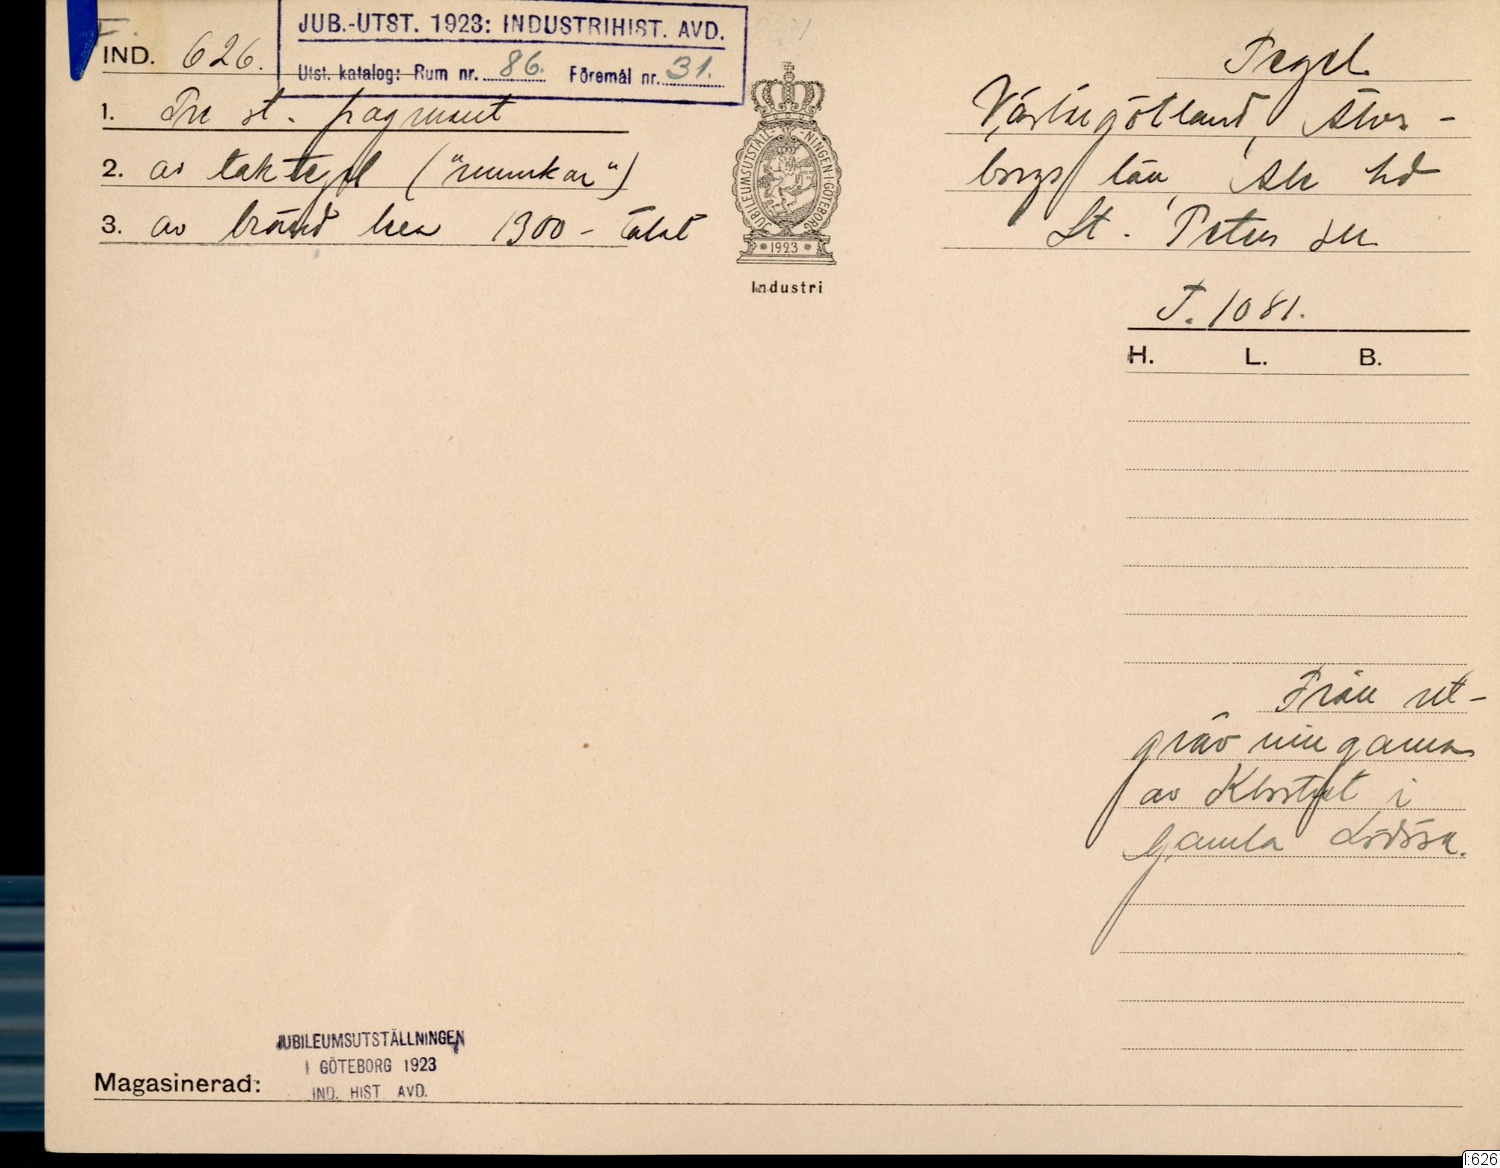 JUB.-UTST. 1923: INDUSTRIHIST. AVD.
Utst. katalog: Rum nr. 86. Föremål nr. 31.
IND. 626.
1. Tre st. fragment
2. av taktegel ("munkar")
3. av bränd lera 1300-talet
JUBILEUMSUTSTÄLLNINGEN I GÖTEBORG
1923
Industri
Tegel.
Västergötland, Älvs-
borgs län, Ale hd
St. Peters sn
T. 1081.
H. L. B.
Från ut-
grävningarna
av Klostret i
Gamla Lödöse.
JUBILEUMSUTSTÄLLNINGEN
I GÖTEBORG 1923
IND. HIST AVD.
Magasinerad:
I:626